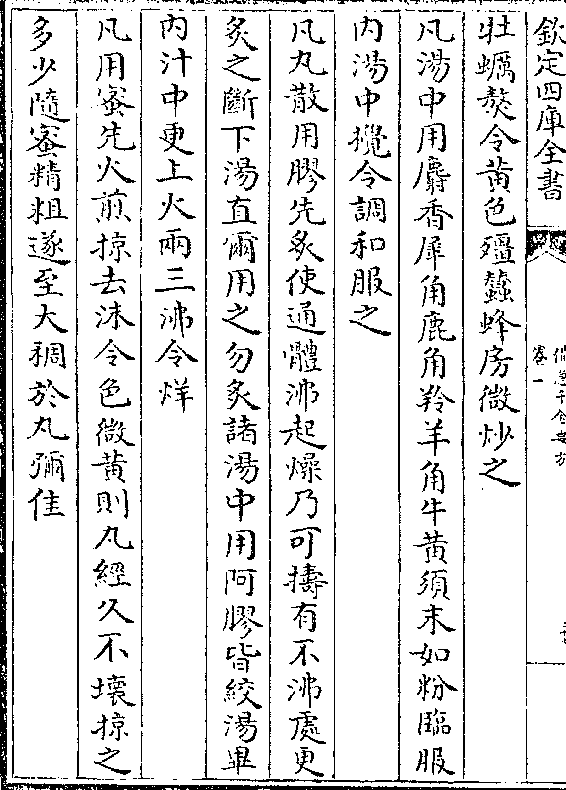 欽定四庫全書
備急千金要方
卷一
牡蠣熬令黄色殭蠶蜂房微炒之
凡湯中用麝香犀角鹿角羚羊角牛黄須末如粉臨服
内湯中攪令調和服之
凡丸散用膠先炙使通體沸起燥乃可擣有不沸處更
炙之斷下湯直爾用之勿炙諸湯中用阿膠皆絞湯畢
内汁中更上火兩三沸令烊
凡用蜜先火煎掠去沫令色微黄則丸經久不壞掠之
多少隨蜜精粗遂至大稠於丸彌佳